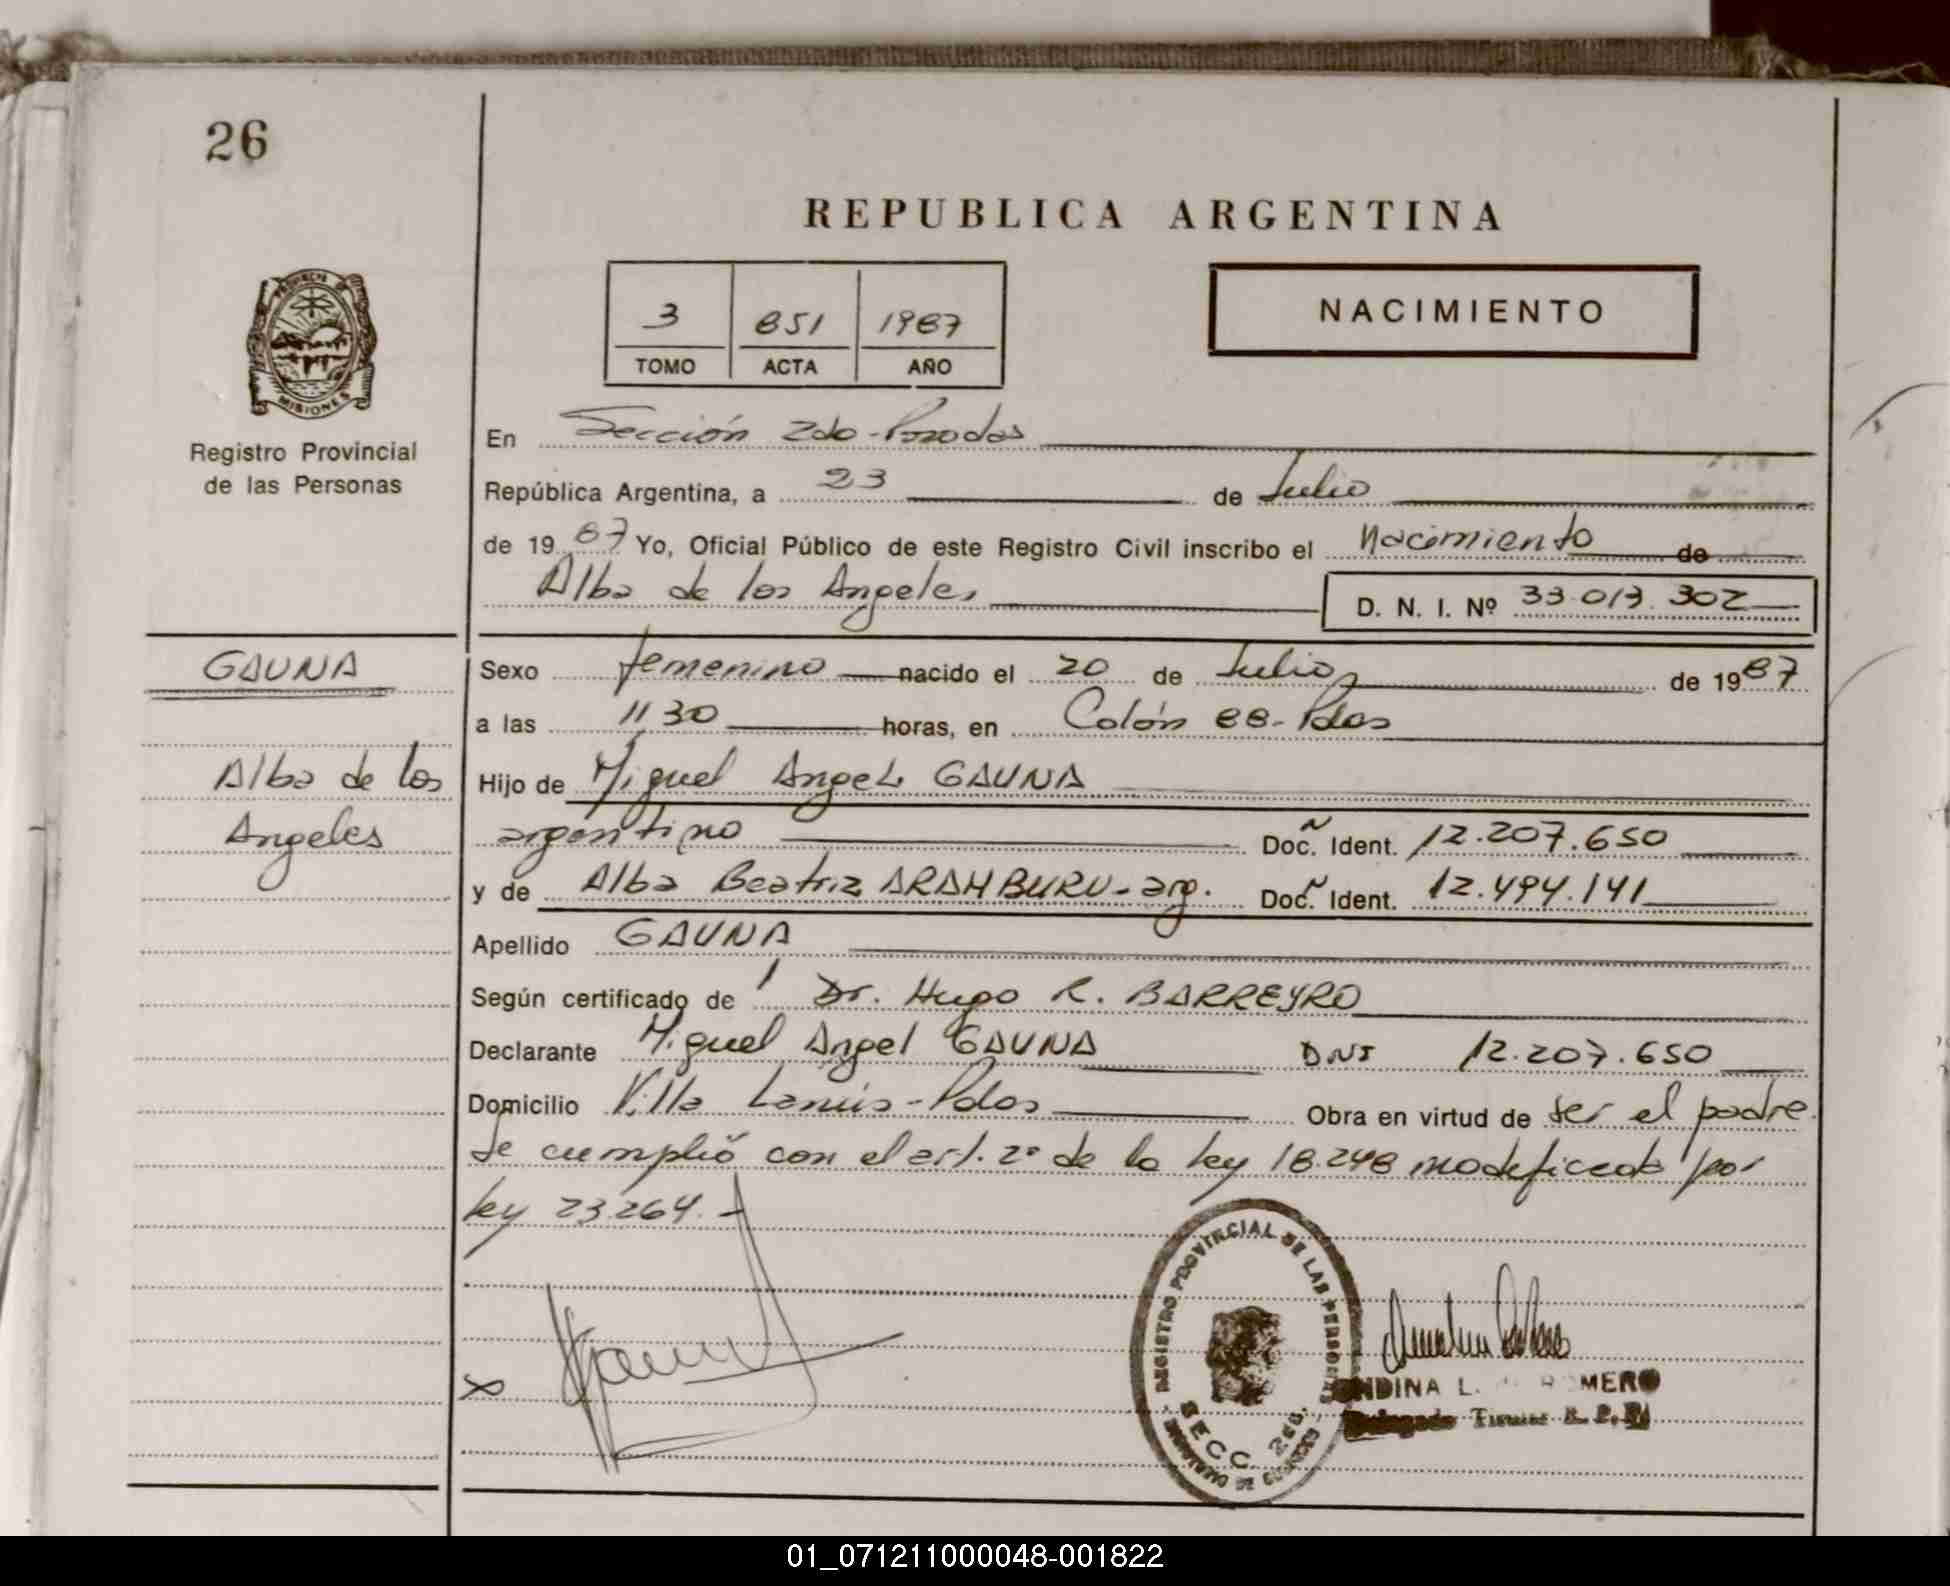 26
REPUBLICA ARGENTINA
3 851 1987
TOMO ACTA AÑO
NACIMIENTO
MISIONES
Registro Provincial
de las Personas
En Sección 2da-Posadas
República Argentina, a 23 de Julio
de 1987 Yo, Oficial Público de este Registro Civil inscribo el Nacimiento de
Alba de los Angeles D. N. I. Nº 33.013.302
GAUNA
Alba de los
Angeles
Sexo femenino nacido el 20 de Julio de 1987
a las 11 30 horas, en Colón 88-Pdas
Hijo de Miguel Angel GAUNA
argentino Doc. Ident. 12.207.650
y de Alba Beatriz ARAMBURU-arg. Doc. Ident. 12.494.141
Apellido GAUNA
Según certificado de Dr. Hugo R. BARREYRO
Declarante Miguel Angel GAUNA DNI 12.207.650
Domicilio Villa Lanús-Pdas Obra en virtud de ser el padre.
Se cumplió con el art. 2º de la ley 18.248 modificado por
ley 23.264.-
REGISTRO PROVINCIAL DE LAS PERSONAS
SECC. 2da.
x
ONDINA L. ROMERO
Delegado Titular R. P. P.
01_071211000048-001822